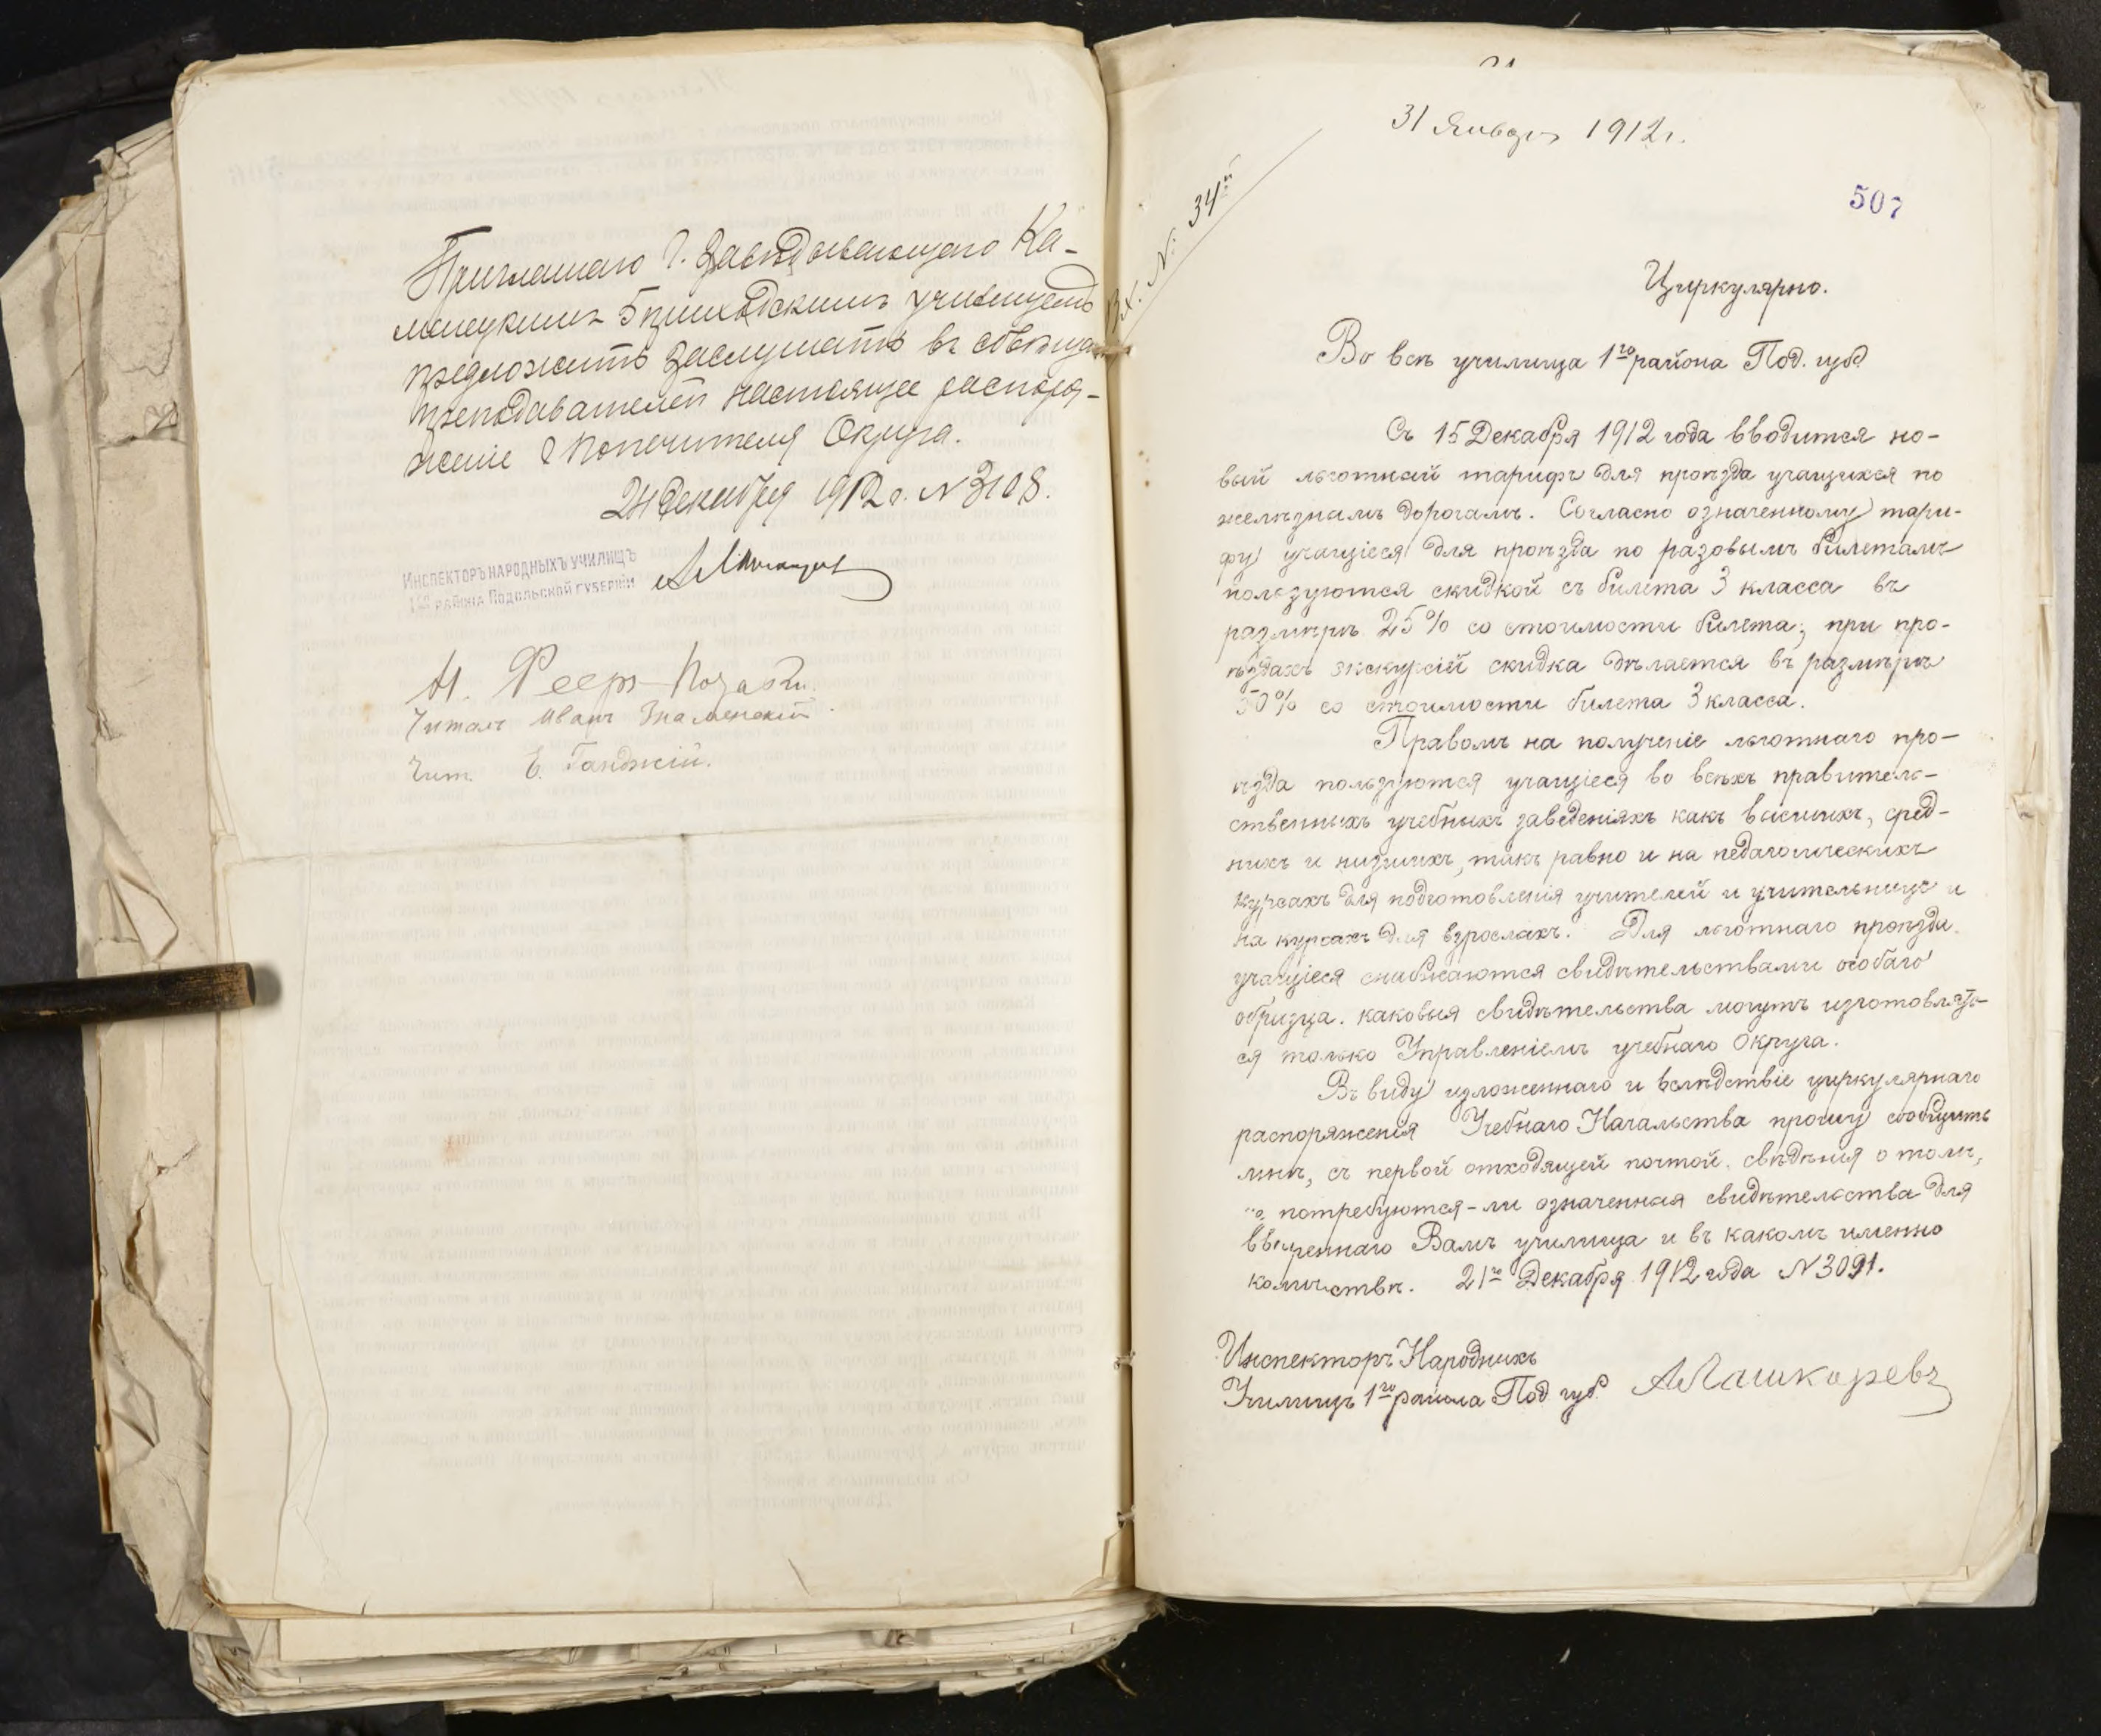 Приглашаю Г. Завѣдывающаго Ка-
менецкимъ 5 приходскимъ училищемъ
предложить заслушать въ совѣща
преподавателей настоящее распоря-
женіе Г Попечителя Округа.
24 Декабря 1912 г. N 3108.
Инспекторъ народныхъ училищъ
1го района Подольской губерніи
Читалъ Иванъ Знаменскій.
Чит. Е. Ганджій.
31 Января 1912 г.
Вх. N: 34
507
Циркулярно.
Во всѣ училища 1го района Под. губ.
Съ 15 Декабря 1912 года вводится но-
вый льготный тарифъ для проѣзда учащихся по
желѣзнымъ дорогамъ. Согласно означенному тари-
фу учащіеся для проѣзда по разовымъ билетамъ
пользуются скидкой съ билета 3 класса въ
размѣрѣ 25% со стоимости билета; при про-
ѣздахъ экскурсій скидка дѣлается въ размѣрѣ
50% со стоимости билета 3 класса.
Правомъ на полученіе льготнаго про-
ѣзда пользуются учащіеся во всѣхъ правитель-
ственныхъ учебныхъ заведеніяхъ какъ высшихъ, сред-
нихъ и низшихъ, такъ равно и на педагогическихъ
курсахъ для подготовленія учителей и учительницъ и
на курсахъ для взрослахъ. Для льготнаго проѣзда
учащіеся снабжаются свидѣтельствами особаго
образца. каковыя свидѣтельства могутъ изготовлять-
ся только Управленіемъ учебнаго Округа.
Въ виду изложеннаго и вслѣдствіе циркулярнаго
распоряженія Учебнаго Начальства прошу сообщить
мнѣ, съ первой отходящей почтой, свѣдѣнія о томъ,
потребуются-ли означенныя свидѣтельства для
ввѣреннаго Вамъ училища и въ какомъ именно
количествѣ. 21го Декабря 1912 года N 3091.
Инспекторъ Народныхъ
Училищъ 1го района Под губ. АПашкоревъ